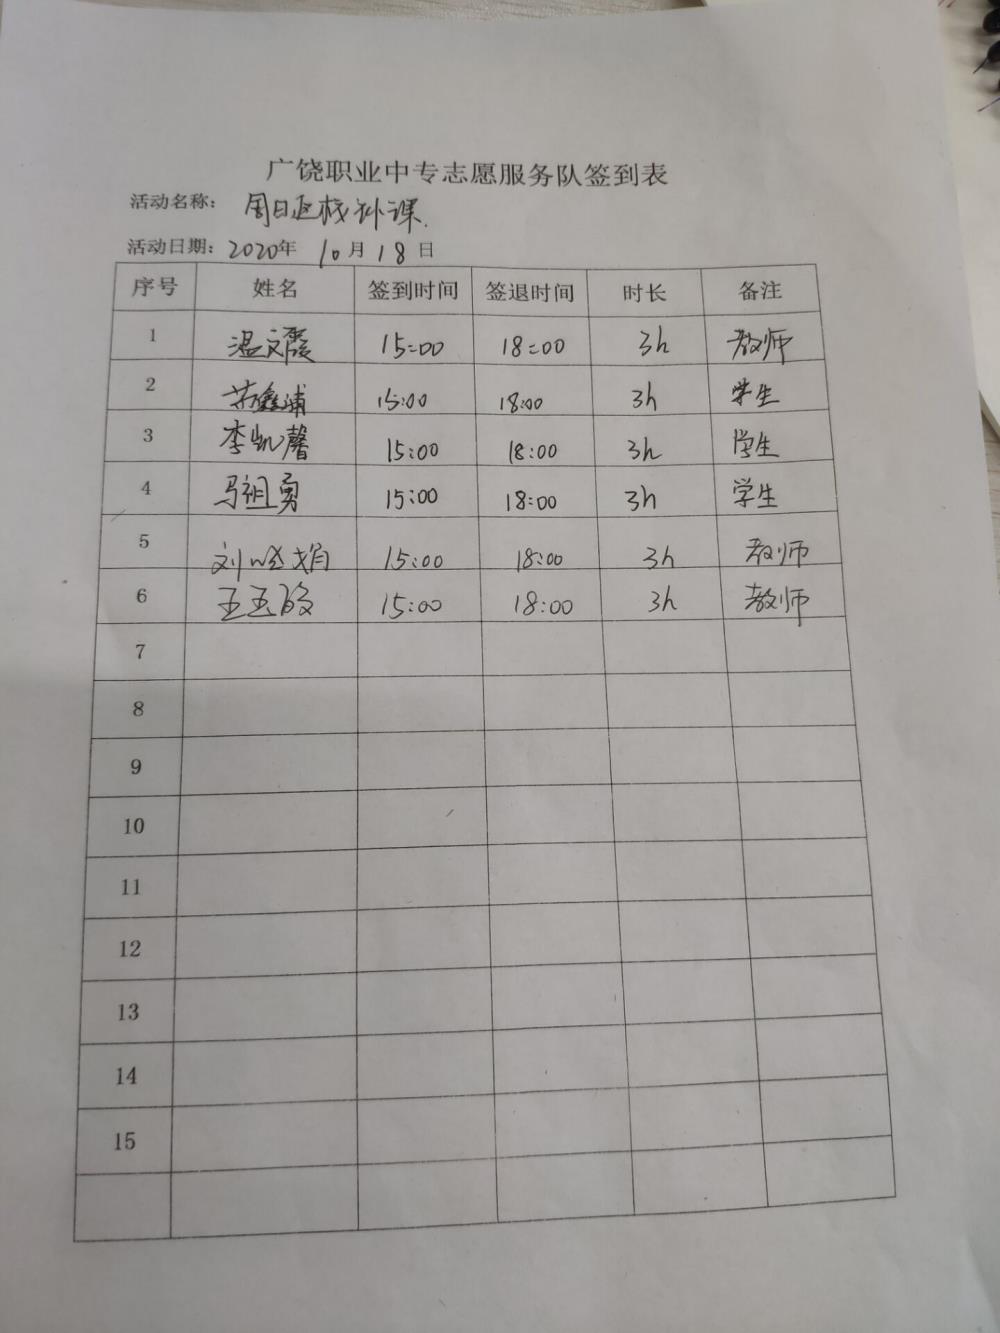 广饶职业中专志愿服务队签到表
活动名称：周日返校补课.
活动日期：2020年 10月 18日
序号 姓名 签到时间 签退时间 时长 备注
1 温文霞 15:00 18:00 3h 教师
2 15:00 18:00 3h 学生
3 李凯馨 15:00 18:00 3h 学生
4 马祖勇 15:00 18:00 3h 学生
5 刘晓娟 15:00 18:00 3h 教师
6 王玉 15:00 18:00 3h 教师
7
8
9
10
11
12
13
14
15